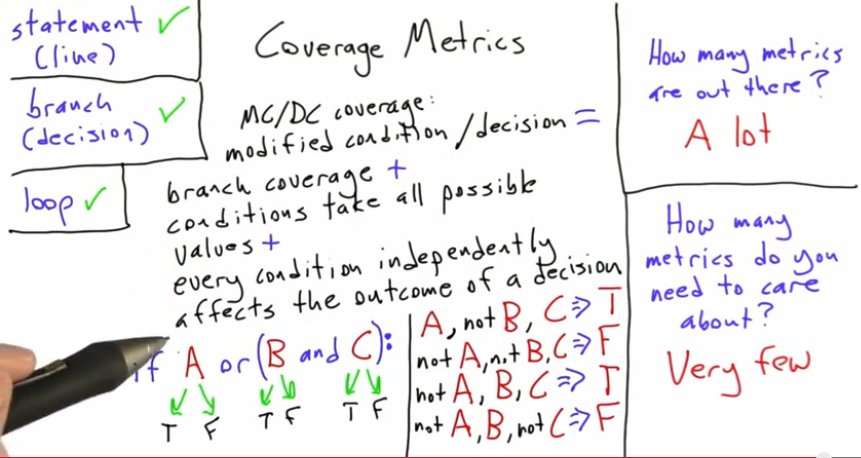 Coverage Metrics
statement
(line)
branch
(decision)
loop
MC/DC coverage:
modified condition/decision =
branch coverage +
conditions take all possible
values +
every condition independently
affects the outcome of a decision
if A or (B and C):
T F T F T F
A, not B, C => T
not A, not B, C => F
not A, B, C => T
not A, B, not C => F
How many metrics
are out there?
A lot
How many
metrics do you
need to care
about?
Very few